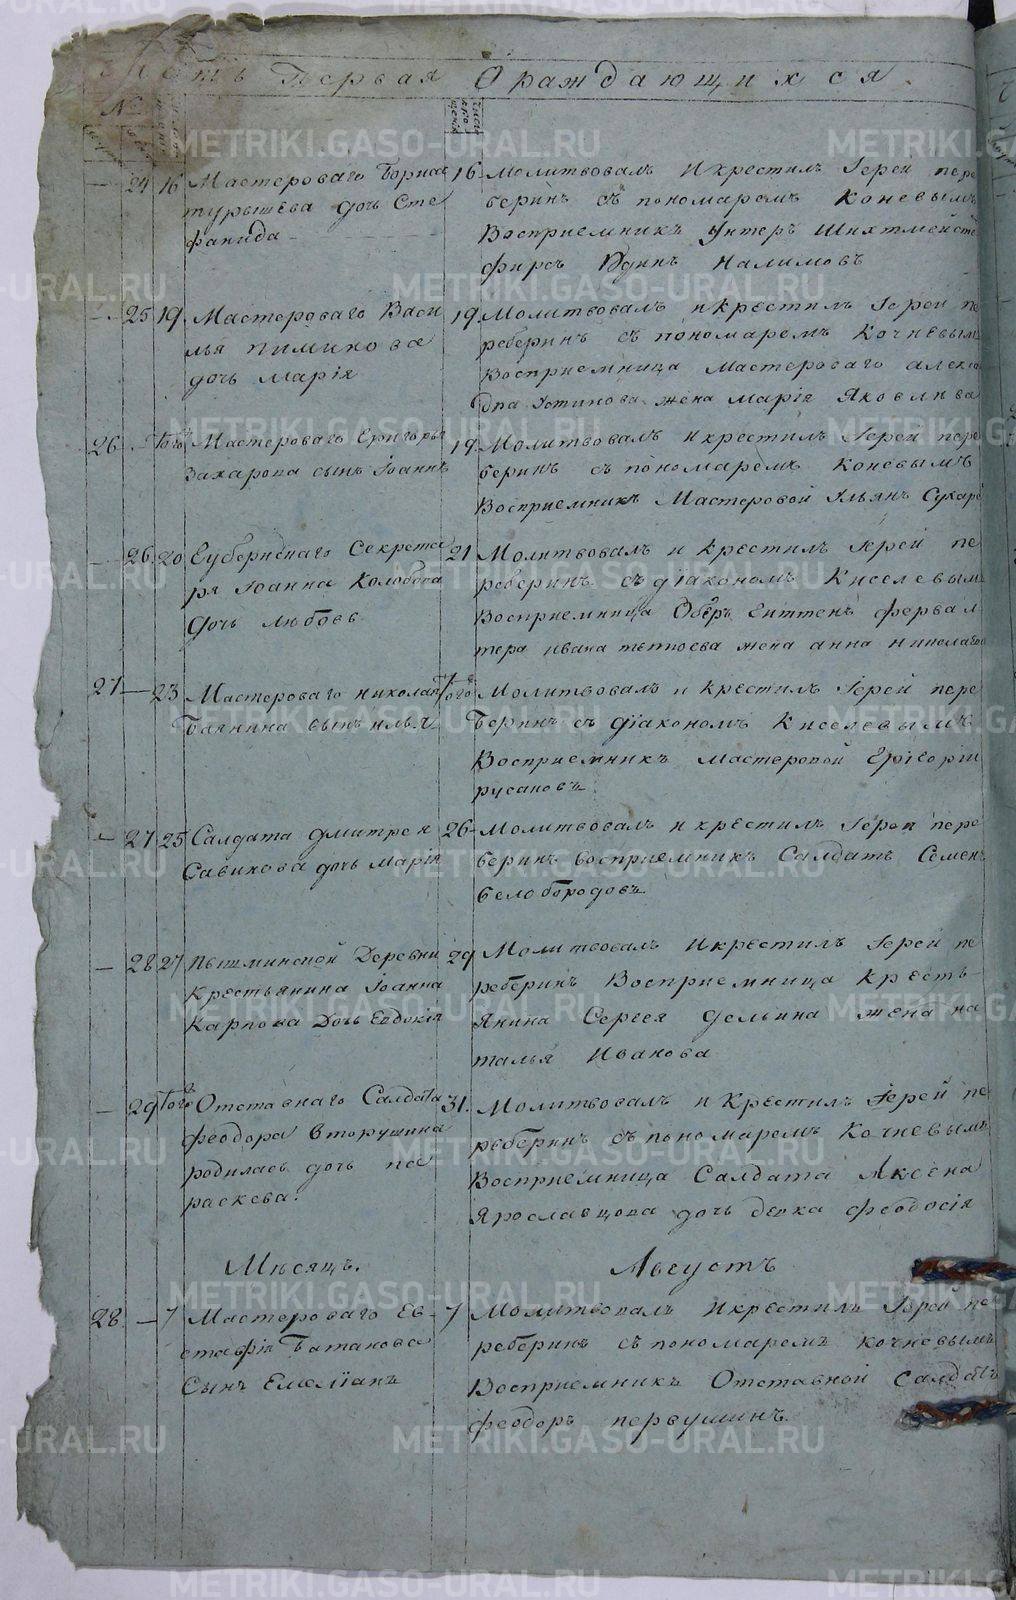 Часть Первая О раждающихся
№
24 16 Мастероваго Бориса
турышева дочь Сте
фанида
16 Молитвовалъ И крестилъ Іерей пере
беринъ съ пономаремъ Коневымъ
Восприемникъ Унтеръ Шихтмейсте
Налимовъ
25 19 Мастероваго Васи
лья пиминова
дочь марія
19 Молитвовалъ и крестилъ Іерей пе
реберинъ съ пономаремъ Кочневымъ
Восприемница Мастероваго алекса
дра Устинова жена марія Яковлева
26 Того Мастероваго Григорья
Захарова сынъ Іоаннъ
19 Молитвовалъ и крестилъ Іерей пере
беринъ съ пономаремъ Коневымъ
Восприемникъ Мастеровой Ульянъ Сухаре
26 20 Губернскаго Секрета
ря Іоанна Колобова
дочь любовь
21 Молитвовалъ и крестилъ Іерей пе
реберинъ съ діакономъ Киселевымъ
Восприемница Оберъ Гиттенъ фервал
тера ивана жена анна николаева
27 23 Мастероваго николая
сынъ илья
Того Молитвовалъ и крестилъ Іерей пере
беринъ съ діакономъ Киселевымъ
Восприемникъ мастеровой Григорій
русановъ
27 25 Салдата дмитрея
Савинова дочь марія
26 Молитвовалъ и крестилъ Іерей пере
беринъ восприемникъ Салдатъ Семенъ
белобородовъ
28 27 пышминской Деревни
Крестьянина Іоанна
Карпова Дочь Евдокія
29 Молитвовалъ И крестилъ Іерей пе
реберинъ Восприемница кресть
янина Сергея жена на
талья Иванова
29 Того Отставнаго Салдата
феодора Вторушина
родилась дочь па
раскева.
31. Молитвовалъ и Крестилъ Іерей пе
реберинъ съ пономаремъ Кочневымъ
Восприемница Салдата Аксена
Ярославцова дочь девка феодосія
Мѣсяцъ. Августъ
28 7 Мастероваго Ев
стафія Батанова
Сынъ Емеліанъ
7 Молитвовалъ И крестилъ Іерей пе
реберинъ съ пономаремъ кочневымъ
Восприемникъ Отставной Салдатъ
феодоръ первушинъ.
METRIKI.GASO-URAL.RU